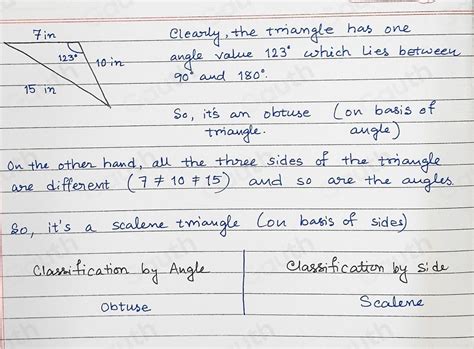 7 in
Clearly, the triangle has one
123°
10 in
angle value 123° which lies between
90° and 180°.
15 in
So, it's an obtuse (on basis of
triangle. angle)
On the other hand, all the three sides of the triangle
are different (7 ≠ 10 ≠ 15) and so are the angles.
So, it's a scalene triangle (on basis of sides)
Classification by Angle
Classification by side
Obtuse
Scalene